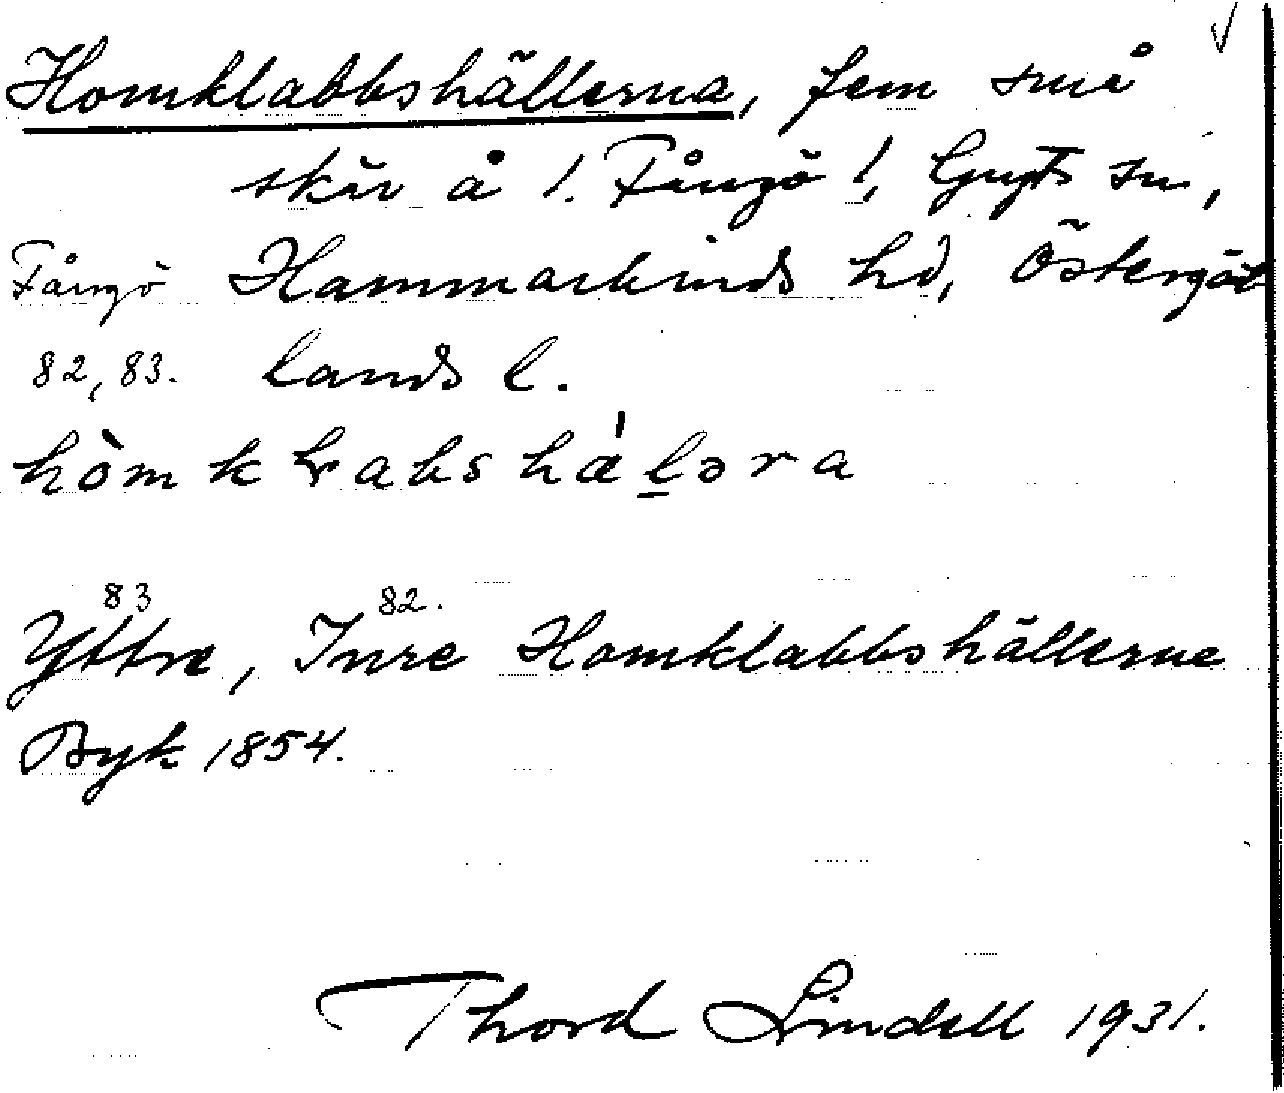 Homklabbshällerna, fem små
skär å /. Fångö /, Gryts sn,
Fångö Hammarkinds hd, Östergöt
82, 83. lands l.
hòmklabshálǝra
83 82.
Yttre, Inre Homklabbshällerne
Byk 1854.
Thord Lindell 1931.